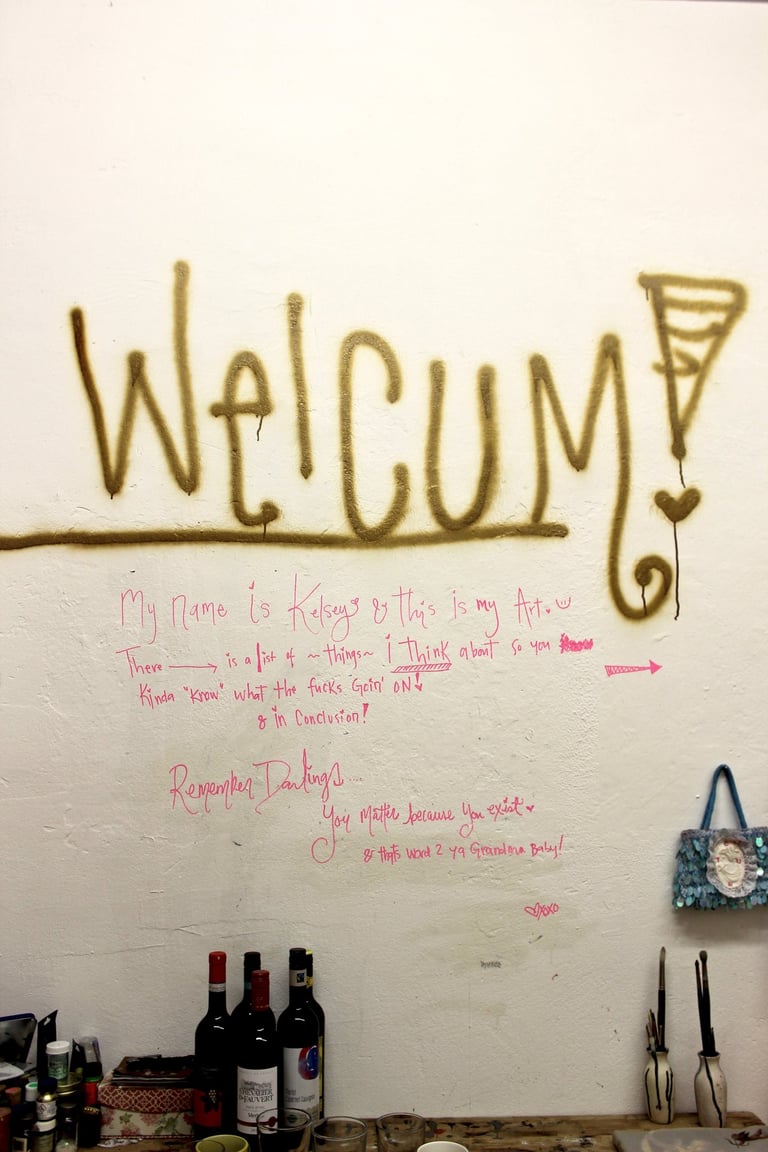 Welcum!
My name is Kelsey & this is my Art.
There is a list of ~things~ i think about so you
Kinda "know" what the fucks Goin' ON!
& in Conclusion!
Remember Darlings...
You Matter because You exist
& thats word 2 ya Grandma Baby!
xoxo
CHEVALIER
DE FAUVERT
Merlot
Cabernet Sauvignon